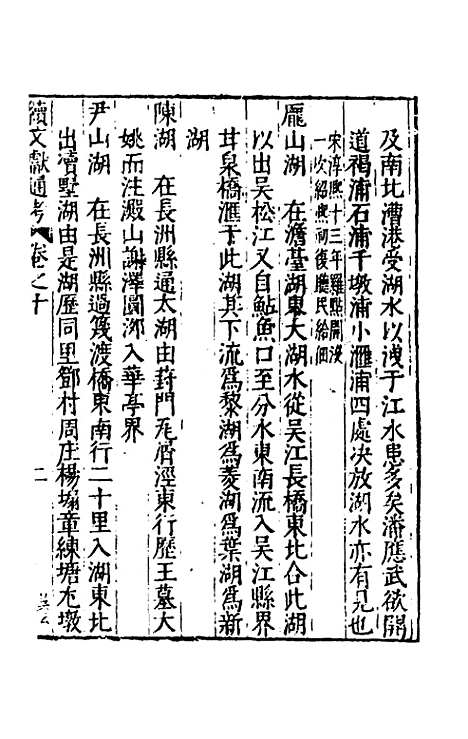 及南北漕港受湖水以洩于江水患多矣潘應武欲開
道褐浦石浦千墩浦小漍浦四處决放湖水亦有見也
宋淳熙十三年羅點開浚
一次紹熙初復聽民給佃
龎山湖 在澹䑓湖東大湖水從吴江長橋東北合此湖
以出吴松江又自鮎魚口至分水東南流入吴江縣界
甘泉橋滙于此湖其下流爲黎湖爲菱湖爲葉湖爲新
湖
陳湖 在長洲縣通太湖由葑門 涇東行歷王墓大
姚而注澱山 澤圓泖入華亭界
尹山湖 在長洲縣過筏渡橋東南行二十里入湖東北
出瀆墅湖由是湖歷同里鄧村周庄楊 童練塘 墩
續文獻通考 卷之十
二